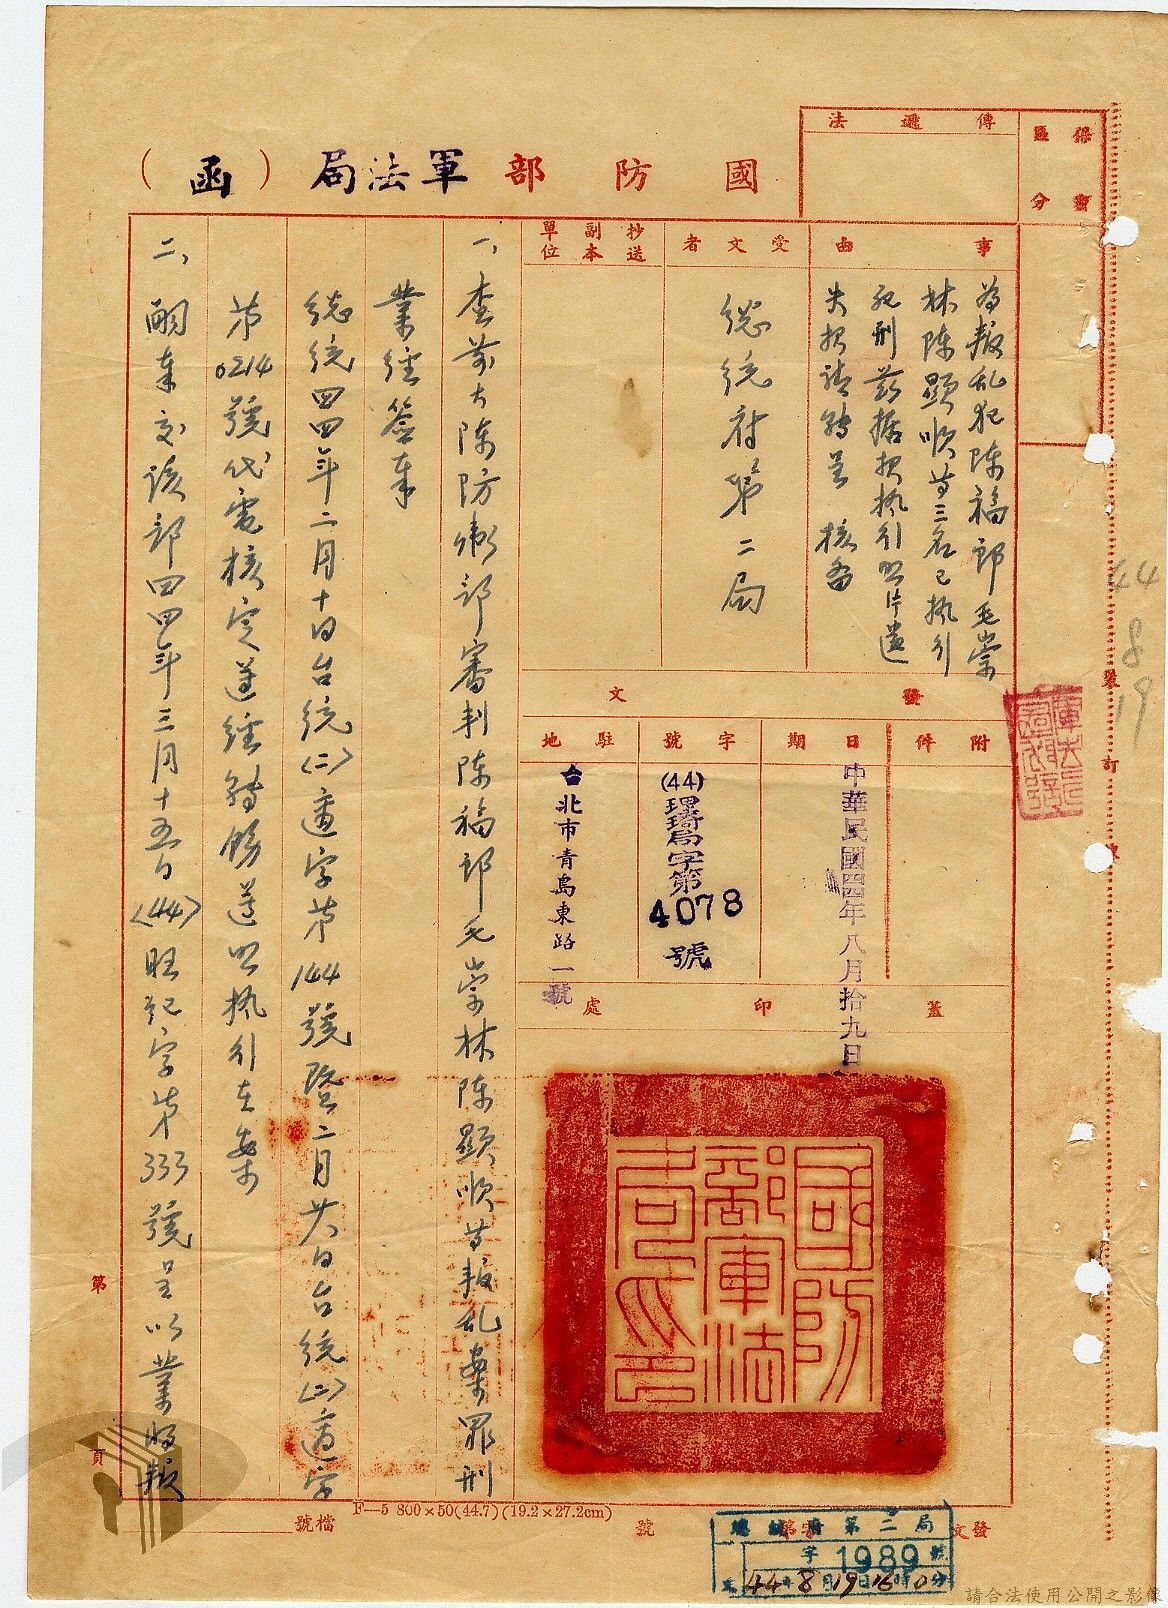 保密區分
傳遞法
國防部軍法局（函）
事由
為叛乱犯陳福郎毛崇
林陳顯順等三名已执行
死刑茲据报执行照片遺
失报請轉呈 核备
受文者
總統府第二局
抄送副本單位
發文
附件
日期
中華民國四四年八月拾九日
字號
(44)理琦局字第4078號
駐地
台北市青島東路一號
蓋印處
國防部軍法局印
一、查前大陳防衛部審判陳福郎毛崇林陳顯順等叛乱案罪刑
業經簽奉
總統四四年二月十日台統(二)適字第144號暨二月廿八日台統(二)適字
第0214號代電核定遵經轉飭遵照执行在案
二、嗣奉交該部四四年三月十五日(44)旺紀字第333號呈以業將叛
裝訂線
44 8 19
第 頁
檔號
F—5 800×50(44.7)(19.2×27.2cm)
發文 字第 號
總統府第二局
字1989號
44年8月19日16時0分
請合法使用公開之影像